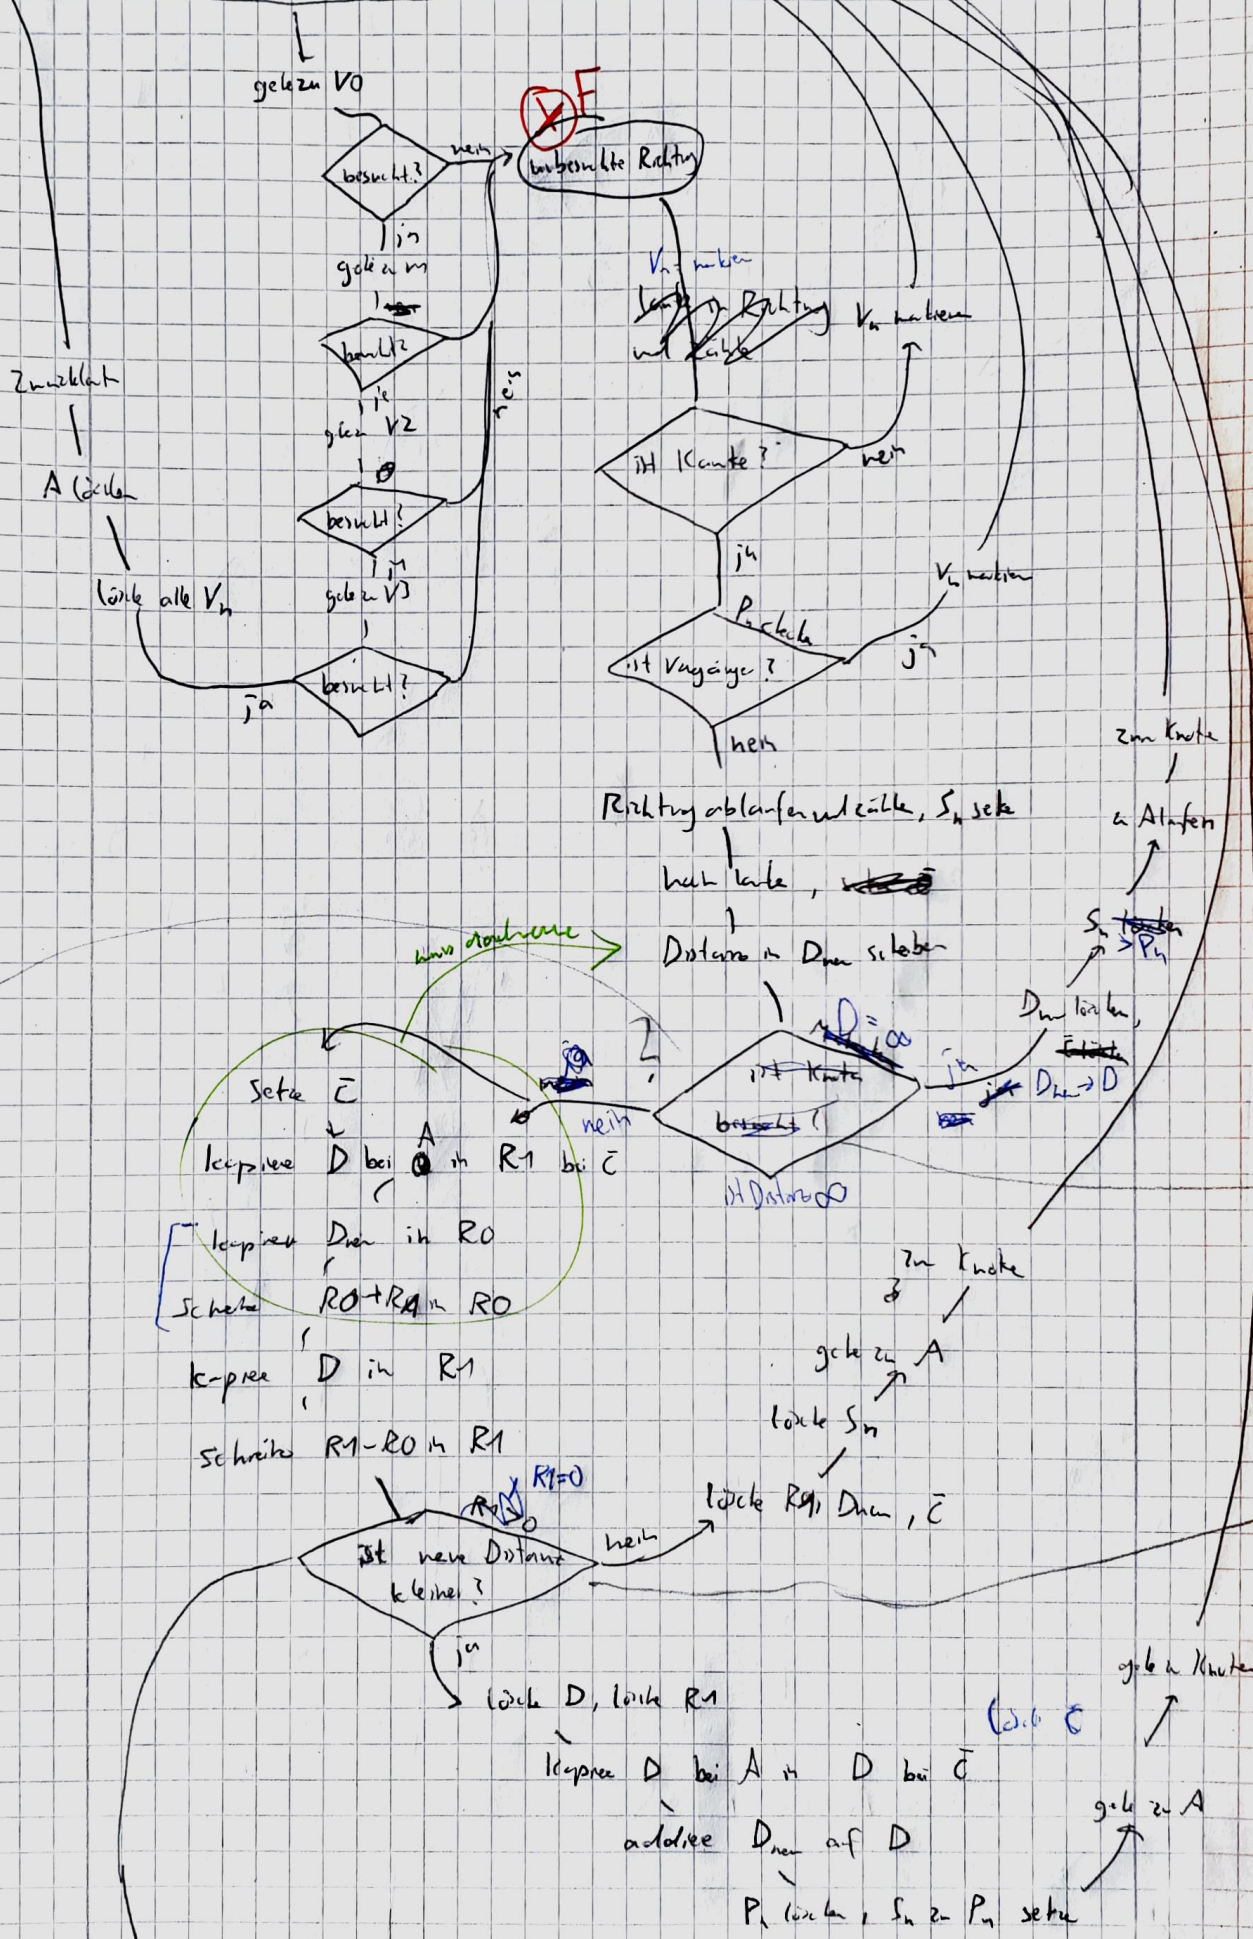 gehe zu V0
F
besucht?
nein
unbesuchte Richtung
ja
gehe zu V1
besucht?
ja
gehe zu V2
besucht?
ja
gehe zu V3
besucht?
ja
nein
A löschen
lösche alle Vn
Vn markieren
Laufe in Richtung
und zähle
Vn markieren
ist Kante?
nein
ja
Pn checken
ist Vorgänger?
Vn markieren
ja
nein
Richtung ablaufen und zählen, Sn setze
Distanz in Dneu schreiben
muss nach
D = ∞
ist Knoten
besucht?
ist Distanz ∞
ja
nein
?
ja
Dneu löschen,
Dneu → D
Sn löschen
> Pn
zu A laufen
zum Knoten
Setze C̄
kopiere D bei A in R1 bei C̄
kopiere Dneu in R0
Schreibe R0+R1 in R0
kopiere D in R1
Schreibe R1-R0 in R1
R1=0
ist neue Distanz
kleiner?
nein
ja
lösche R1, Dneu, C̄
lösche Sn
gehe zu A
zum Knoten
lösche D, lösche R1
kopiere D bei A in D bei C̄
addiere Dneu auf D
Pn löschen, Sn zu Pn setze
gehe zu A
lösche C̄
gehe zu Knoten